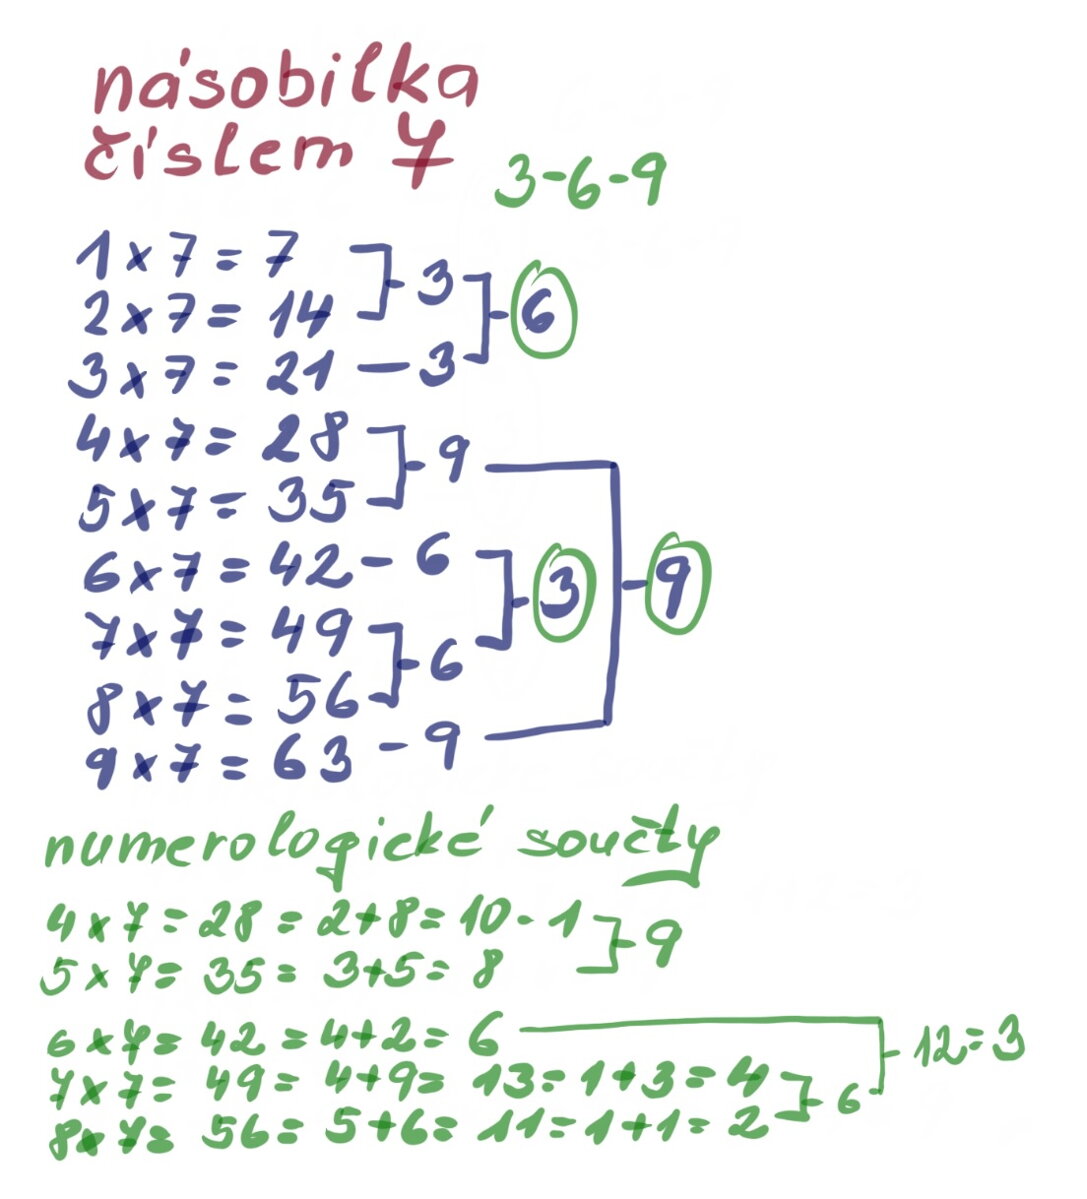 násobilka
číslem 7
3-6-9
1 x 7 = 7
3
2 x 7 = 14
6
3 x 7 = 21 — 3
4 x 7 = 28
9
5 x 7 = 35
6 x 7 = 42 - 6
3
9
7 x 7 = 49
6
8 x 7 = 56
9 x 7 = 63 - 9
numerologické součty
4 x 7 = 28 = 2+8 = 10 - 1
9
5 x 7 = 35 = 3+5 = 8
6 x 7 = 42 = 4+2 = 6
12=3
7 x 7 = 49 = 4+9 = 13 = 1+3 = 4
6
8 x 7 = 56 = 5+6 = 11 = 1+1 = 2